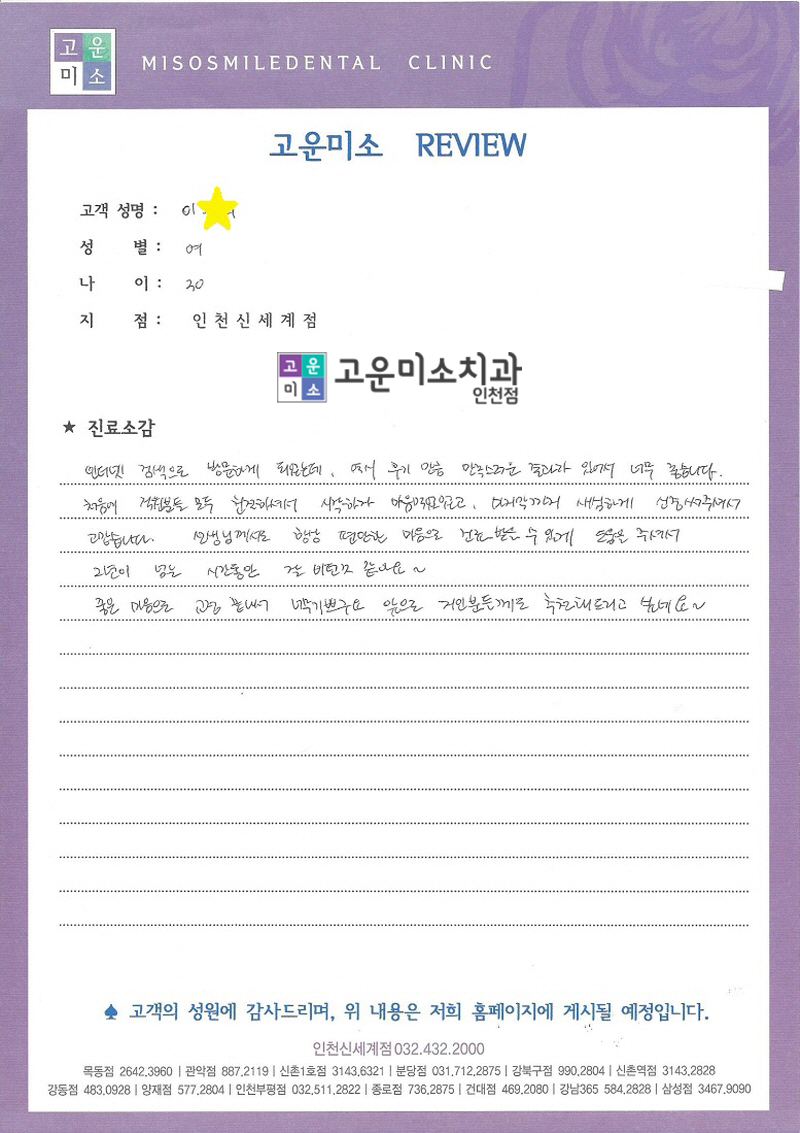 고운
미소
MISOSMILEDENTAL CLINIC
고운미소 REVIEW
고객 성명 : 이
성 별 : 여
나 이 : 30
지 점 : 인천신세계점
고운
미소
고운미소치과
인천점
★ 진료소감
인터넷 검색으로 방문하게 되었는데, 역시 후기 만큼 만족스러운 결과가 있어서 너무 좋습니다.
처음에 직원분들 모두 친절하셔서 시작하기 마음 고, 마지막까지 세심하게 신경써주셔서
고맙습니다. 선생님께서도 항상 편안한 마음으로 진료 받을 수 있게 도움을 주셔서
2년이 넘는 시간동안 잘 버틴거 같아요~
좋은 마음으로 교정 끝내서 너무기쁘구요 앞으로 지인분들께도 추천해드리고 싶네요~
♠ 고객의 성원에 감사드리며, 위 내용은 저희 홈페이지에 게시될 예정입니다.
인천신세계점 032.432.2000
목동점 2642.3960 | 관악점 887.2119 | 신촌1호점 3143.6321 | 분당점 031.712.2875 | 강북구점 990.2804 | 신촌역점 3143.2828
강동점 483.0928 | 양재점 577.2804 | 인천부평점 032.511.2822 | 종로점 736.2875 | 건대점 469.2080 | 강남365 584.2828 | 삼성점 3467.9090